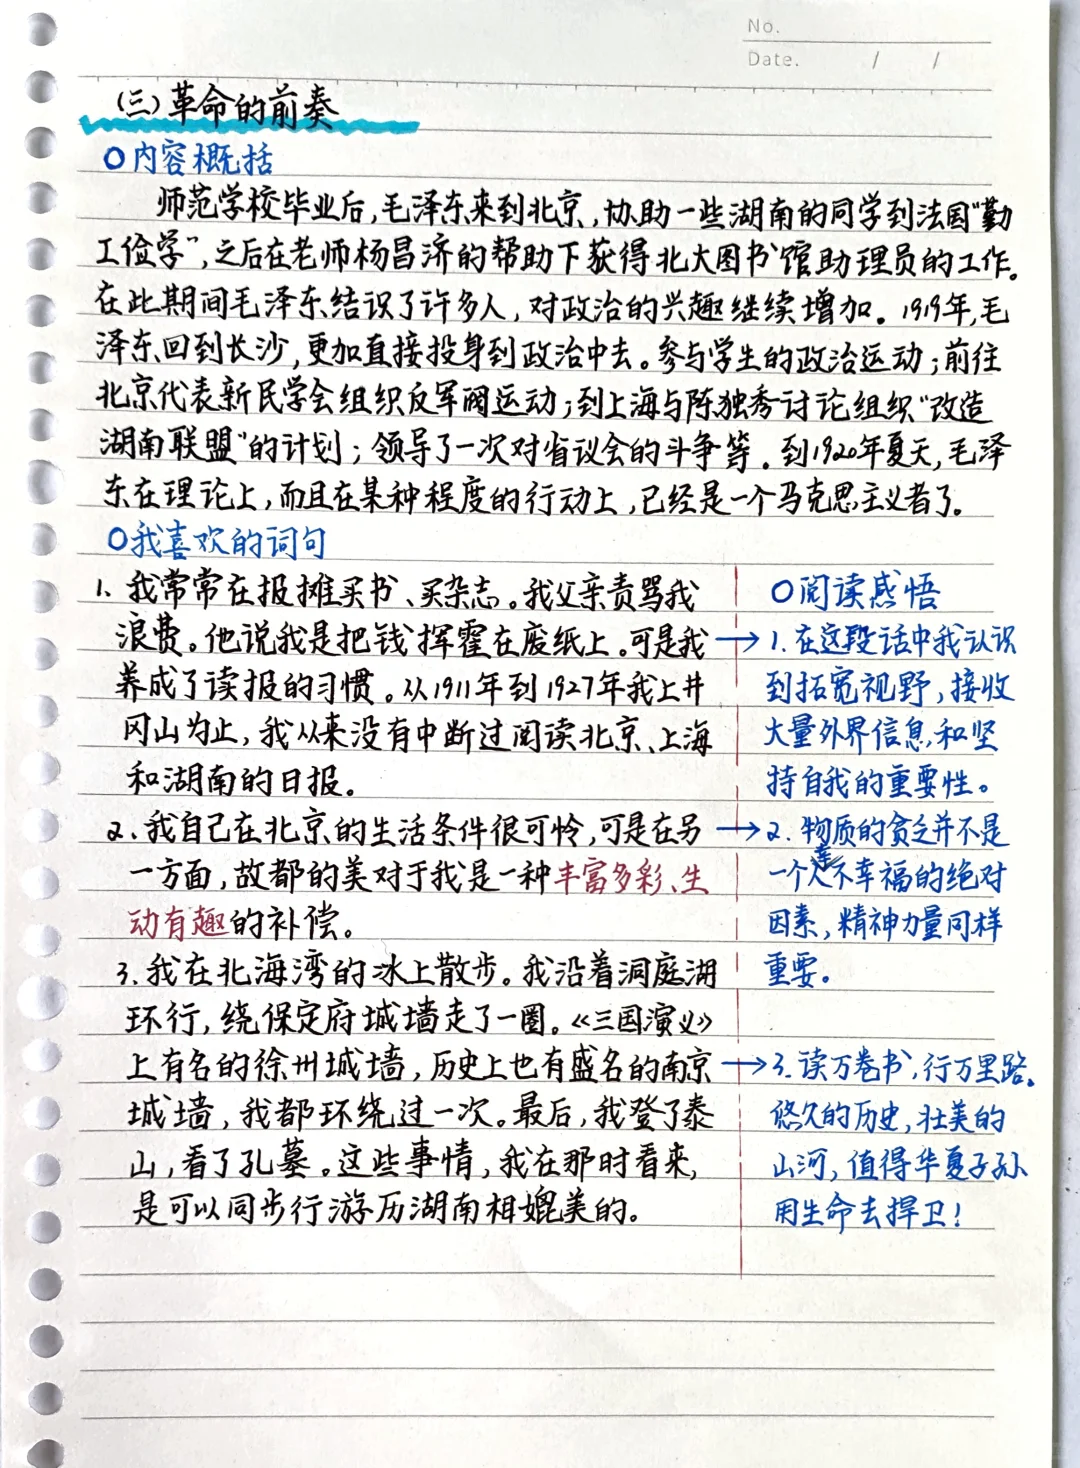 No.
Date. / /
(三)革命的前奏
○内容概括
师范学校毕业后,毛泽东来到北京,协助一些湖南的同学到法国“勤
工俭学”,之后在老师杨昌济的帮助下获得北大图书馆助理员的工作。
在此期间毛泽东结识了许多人,对政治的兴趣继续增加。1919年,毛
泽东回到长沙,更加直接投身到政治中去。参与学生的政治运动;前往
北京代表新民学会组织反军阀运动;到上海与陈独秀讨论组织“改造
湖南联盟”的计划;领导了一次对省议会的斗争等。到1920年夏天,毛泽
东在理论上,而且在某种程度的行动上,已经是一个马克思主义者了。
○我喜欢的词句
1.我常常在报摊买书、买杂志。我父亲责骂我
浪费。他说我是把钱挥霍在废纸上。可是我
养成了读报的习惯。从1911年到1927年我上井
冈山为止,我从来没有中断过阅读北京、上海
和湖南的日报。
2.我自己在北京的生活条件很可怜,可是在另
一方面,故都的美对于我是一种丰富多彩、生
动有趣的补偿。
3.我在北海湾的冰上散步。我沿着洞庭湖
环行,绕保定府城墙走了一圈。《三国演义》
上有名的徐州城墙,历史上也有盛名的南京
城墙,我都环绕过一次。最后,我登了泰
山,看了孔墓。这些事情,我在那时看来,
是可以同步行游历湖南相媲美的。
○阅读感悟
→1.在这段话中我认识
到拓宽视野,接收
大量外界信息,和坚
持自我的重要性。
→2.物质的贫乏并不是
一个人不幸福的绝对
因素,精神力量同样
重要。
→3.读万卷书,行万里路。
悠久的历史,壮美的
山河,值得华夏子孙
用生命去捍卫!